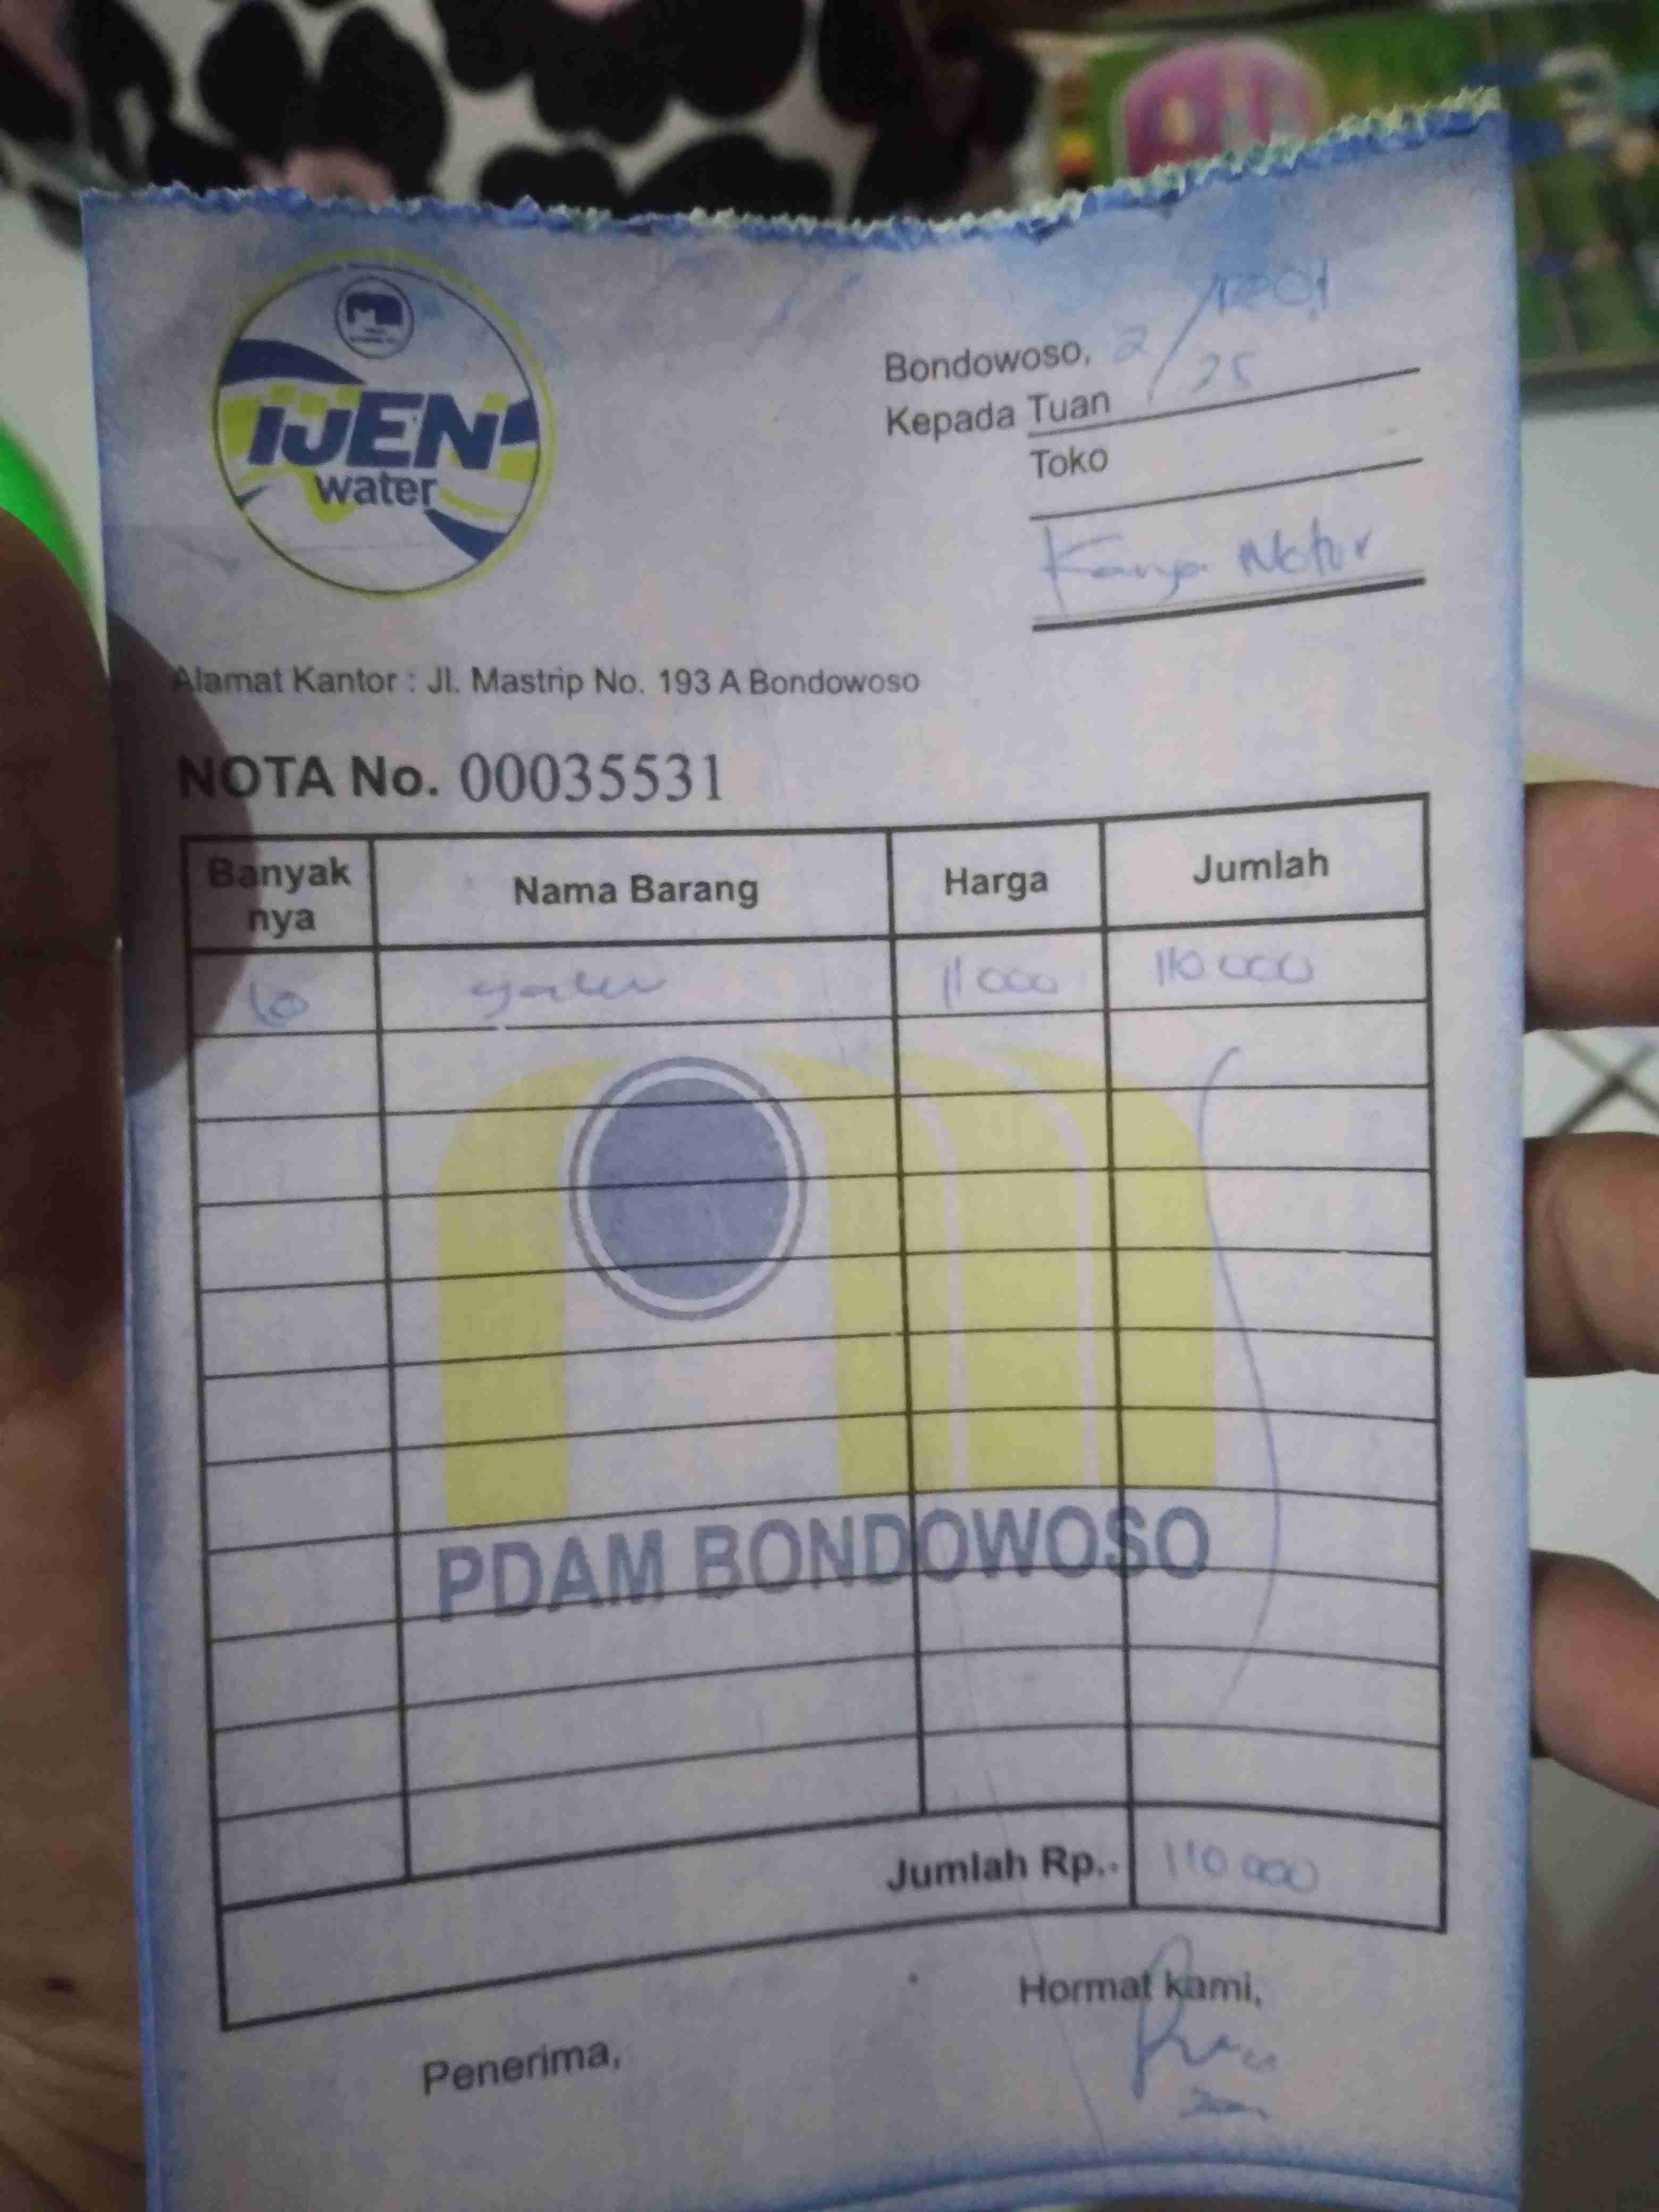 IJEN
water
Bondowoso, 2/25
Kepada Tuan
Toko
Karya Motor
Alamat Kantor : Jl. Mastrip No. 193 A Bondowoso
NOTA No. 00035531
Banyak nya Nama Barang Harga Jumlah
10 11 000 110 000
PDAM BONDOWOSO
Jumlah Rp. 110 000
Hormat kami,
Penerima,